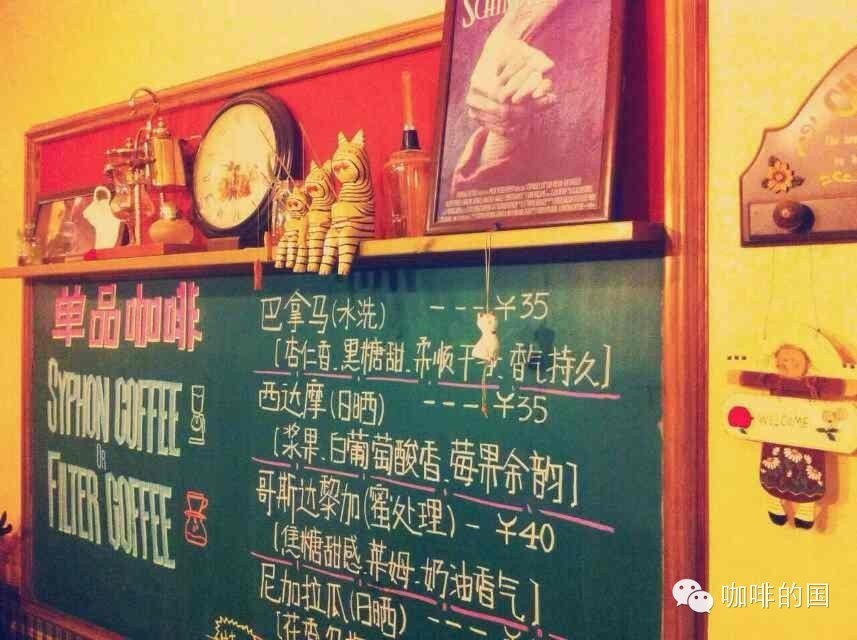 单品咖啡
SYPHON COFFEE
OR
FILTER COFFEE
巴拿马(水洗) ---¥35
[杏仁香.黑糖甜.柔顺干净.香气持久]
西达摩(日晒) ---¥35
[浆果.白葡萄酸香.莓果余韵]
哥斯达黎加(蜜处理)-¥40
[焦糖甜感.莱姆.奶油香气]
尼加拉瓜(日晒)
WELCOME
咖啡的国